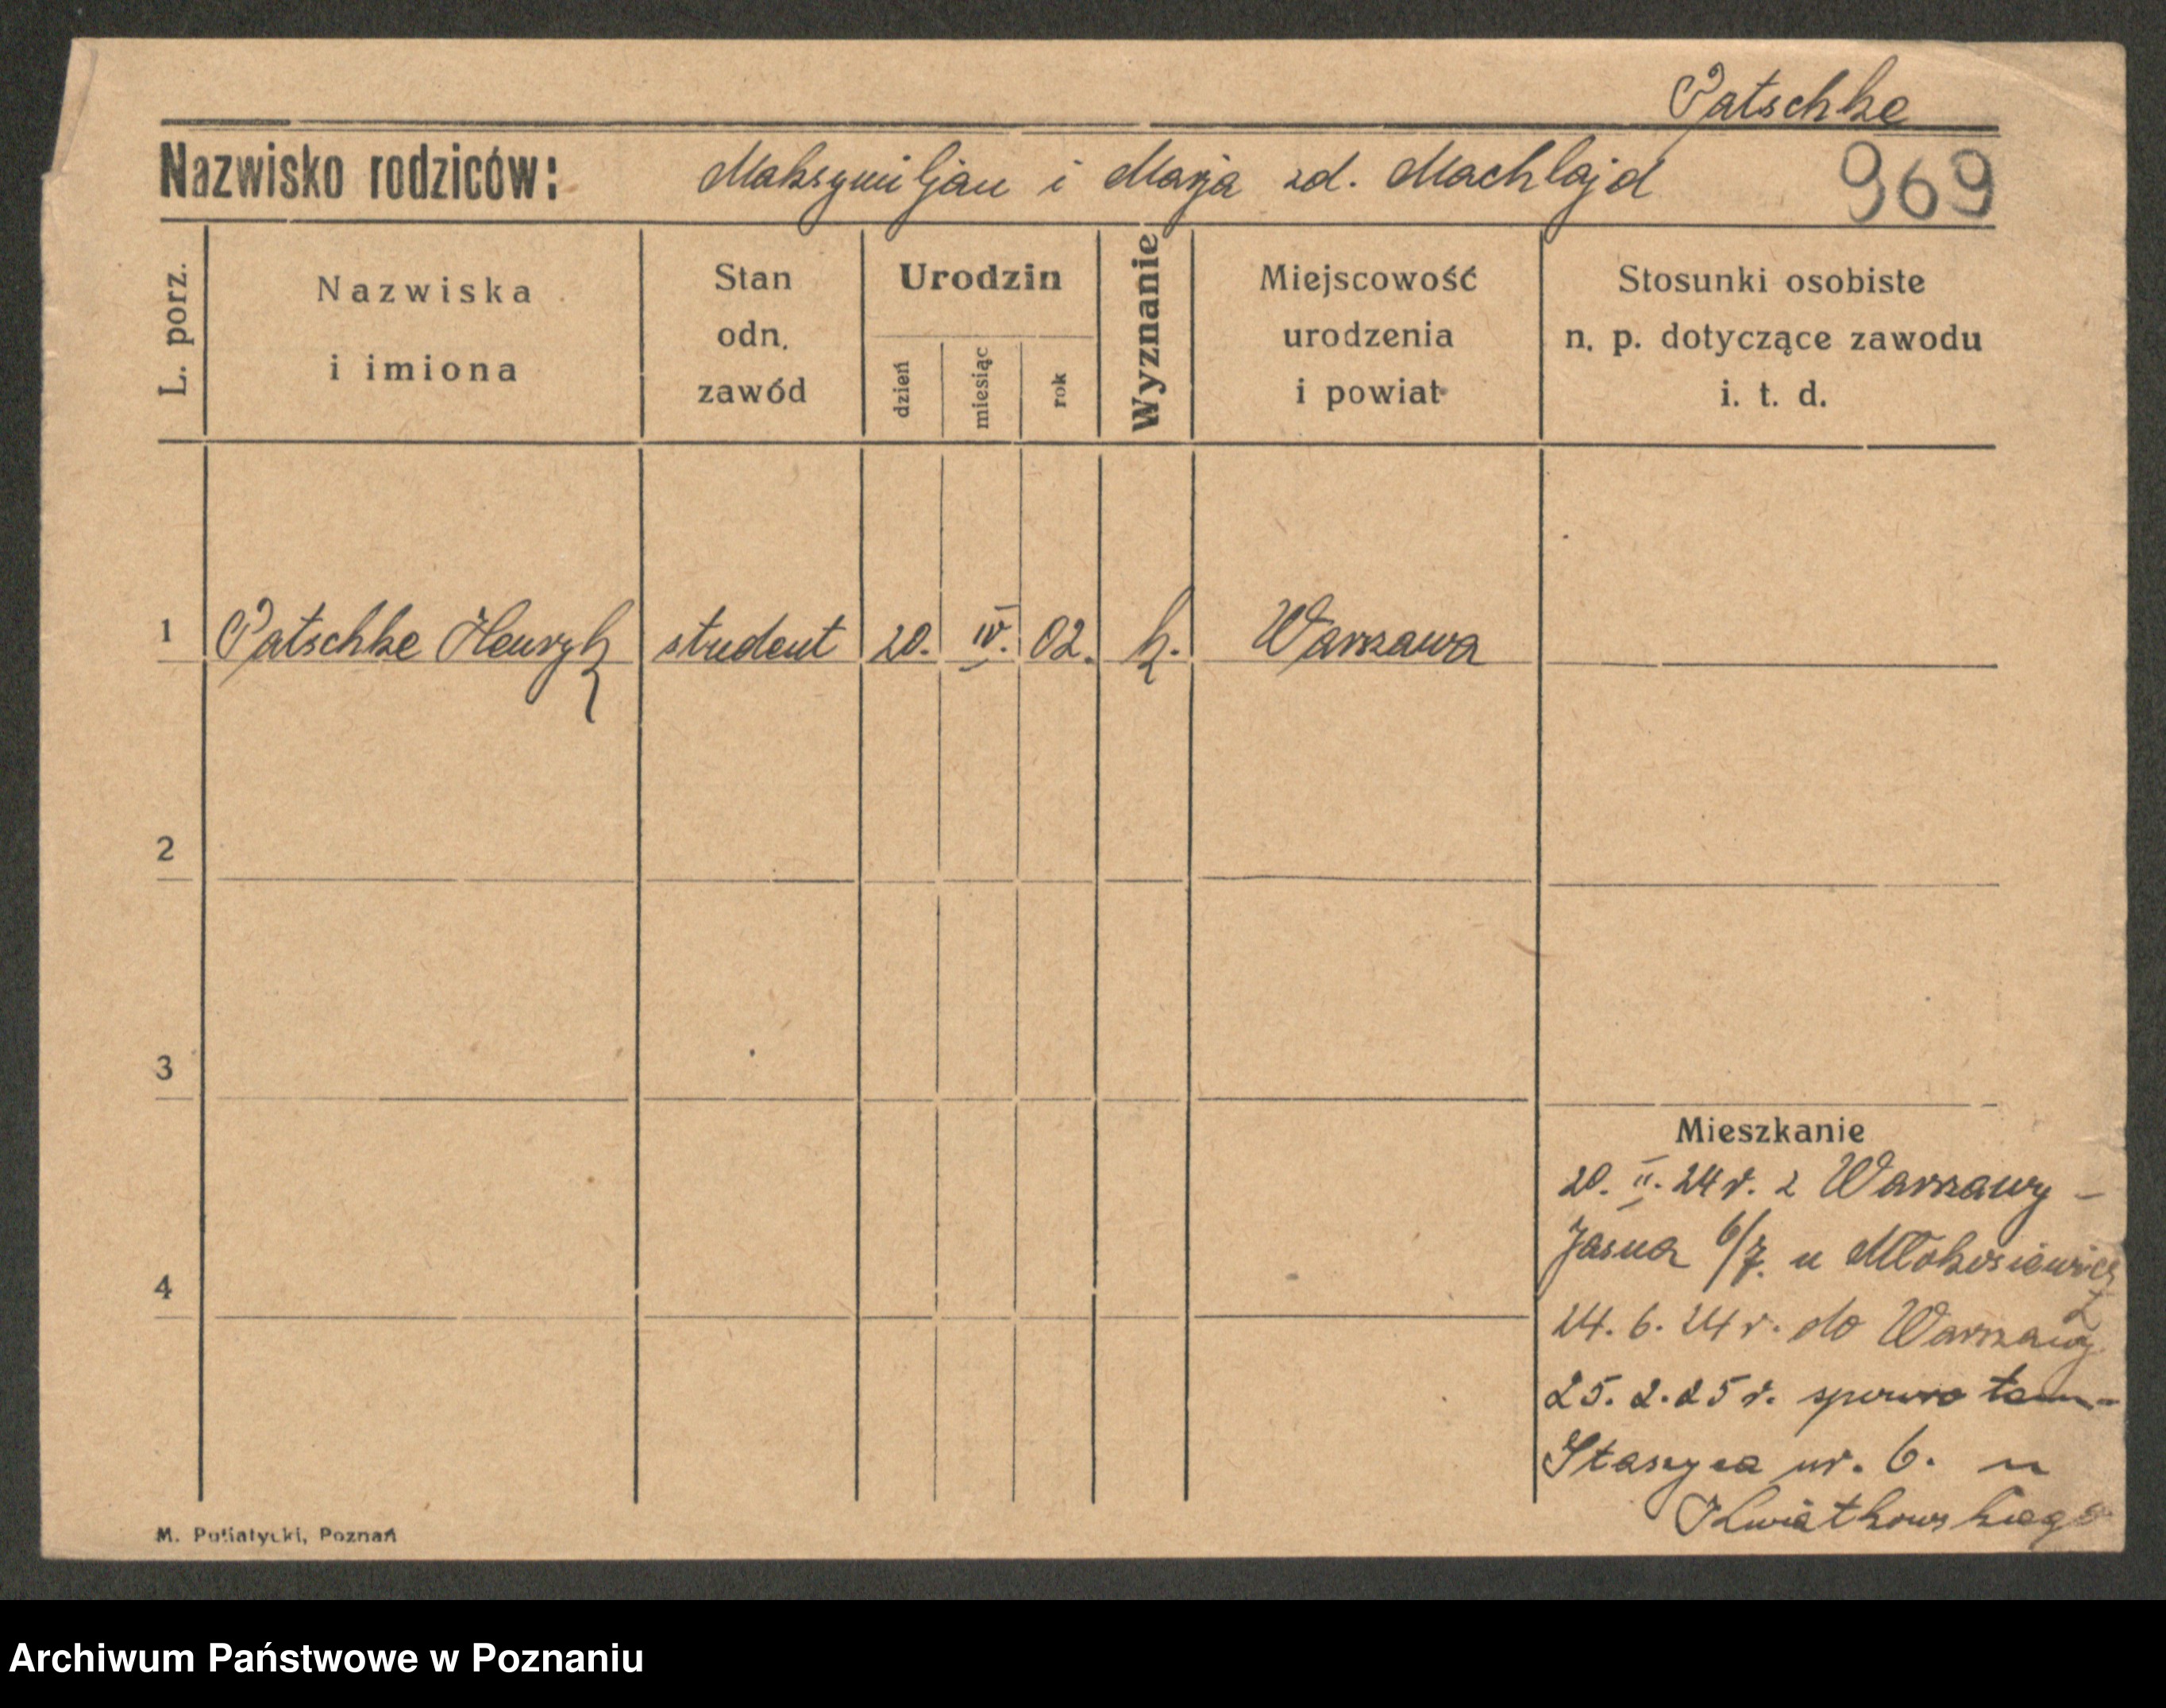 Patschke
Nazwisko rodziców: Maksymiljan i Marja zd. Machlajd 969
L. porz.
Nazwiska
i imiona
Stan
odn.
zawód
Urodzin
dzień
miesiąc
rok
Wyznanie
Miejscowość
urodzenia
i powiat
Stosunki osobiste
n. p. dotyczące zawodu
i. t. d.
1 Patschke Henryk student 20. IV. 02. k. Warszawa
2
3
4
Mieszkanie
20. II. 24 r. z Warszawy –
Jasna 6/7. u Młokosiewicz
24. 6. 24 r. do Warszawy
25. 2. 25 r. spowro tam –
Staszyca nr. 6. u
Kwiatkowskiego
M. Putiatycki, Poznań
Archiwum Państwowe w Poznaniu